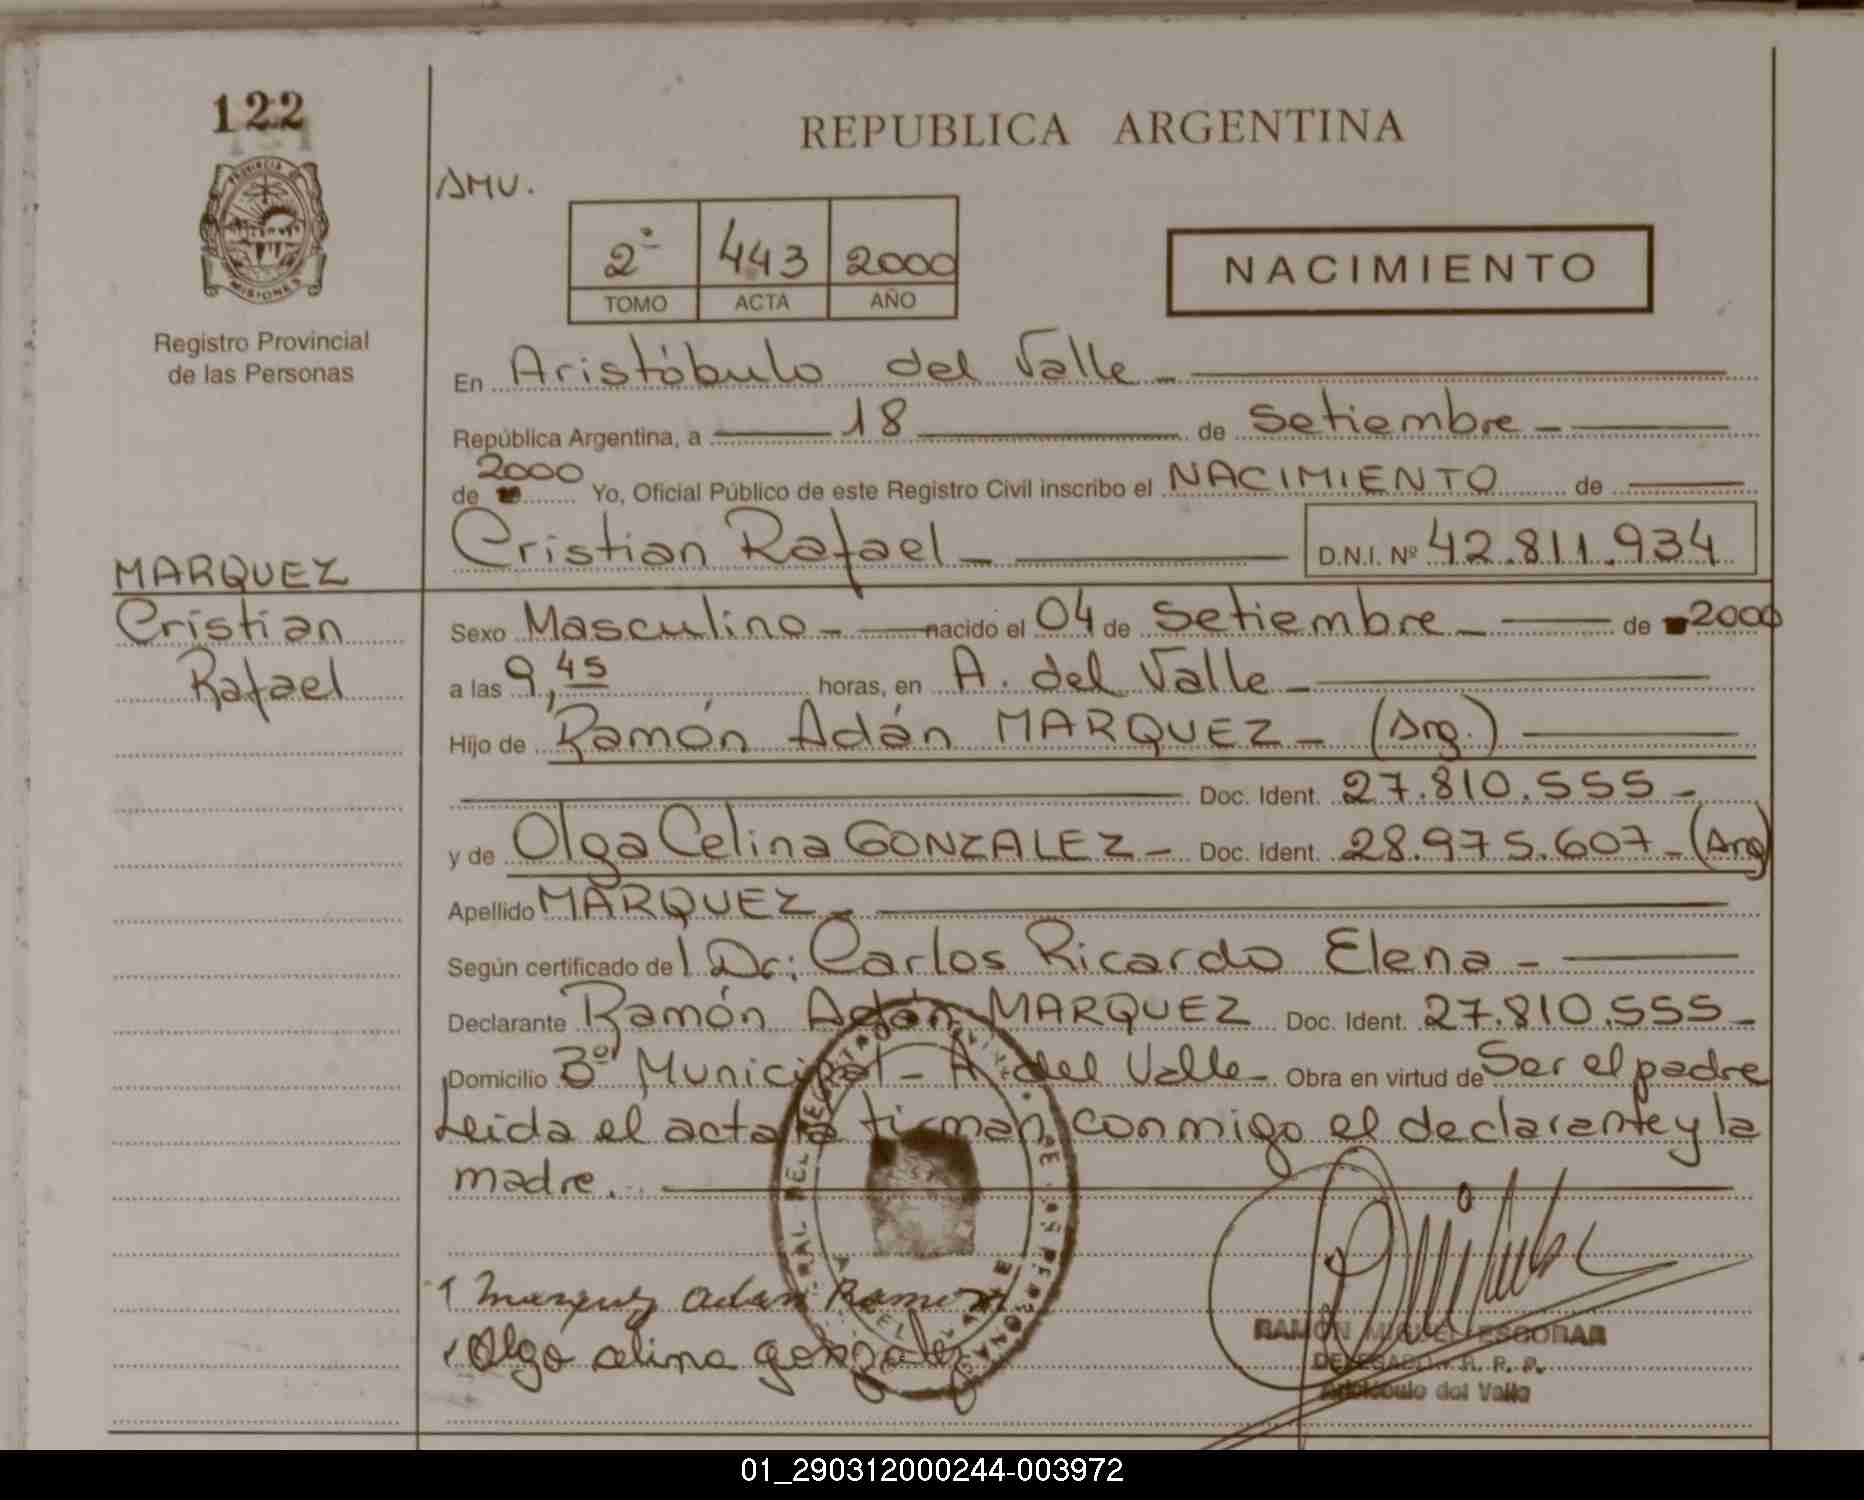 122
PROVINCIA DE
MISIONES
Registro Provincial
de las Personas
MARQUEZ
Cristian
Rafael
REPUBLICA ARGENTINA
AMU.
2º 443 2000
TOMO ACTA AÑO
NACIMIENTO
En Aristóbulo del Valle
República Argentina, a 18 de Setiembre
de 2000 Yo, Oficial Público de este Registro Civil inscribo el NACIMIENTO de
Cristian Rafael D.N.I. Nº 42.811.934
Sexo Masculino nacido el 04 de Setiembre de 2000
a las 9,45 horas, en A. del Valle
Hijo de Ramón Adán MARQUEZ (Arg.)
Doc. Ident. 27.810.555
y de Olga Celina GONZALEZ Doc. Ident. 28.975.607 (Arg)
Apellido MARQUEZ
Según certificado del Dr: Carlos Ricardo Elena
Declarante Ramón Adán MARQUEZ Doc. Ident. 27.810.555
Domicilio Bº Municipal - A. del Valle Obra en virtud de Ser el padre
Leida el acta la firman conmigo el declarante y la
madre.
Marquez adan Ramon
Olga celina gonzalez
RAMÓN MIGUEL ESCOBAR
DELEGADO R. P. P.
Aristóbulo del Valle
01_290312000244-003972